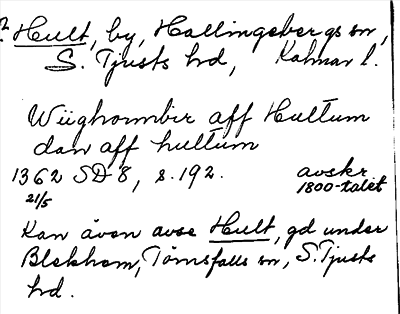 Hult, by, Hallingebergs sn,
S. Tjusts hd, Kalmar l.
Wiighormber aff Hultum
dan aff hultum
1362 SD 8, s. 192. avskr.
21/5 1800-talet
Kan även avse Hult, gd under
Blekhem, Törnsfalls sn, S. Tjusts
hd.